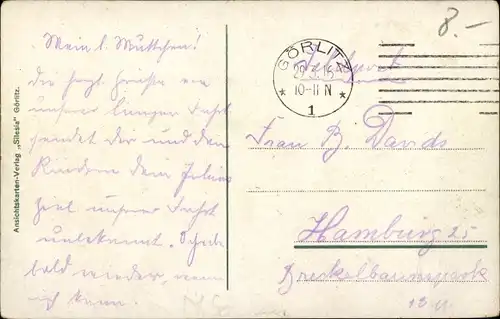 8.-
Mein l. Muttchen!
Die herzl. Grüsse von
unserer langen Fahrt
sendet Dir und den
Kindern Dein Julius
Ziel unserer Fahrt
unbekannt. Schreibe
bald wieder, wenn
ich kann.
Ansichtskarten-Verlag „Silesia“ Görlitz.
GÖRLITZ
29.3.15
10-11 N
* 1 *
Feldpost
Frau B. Davids
Hamburg 25
Brekelbaumspark